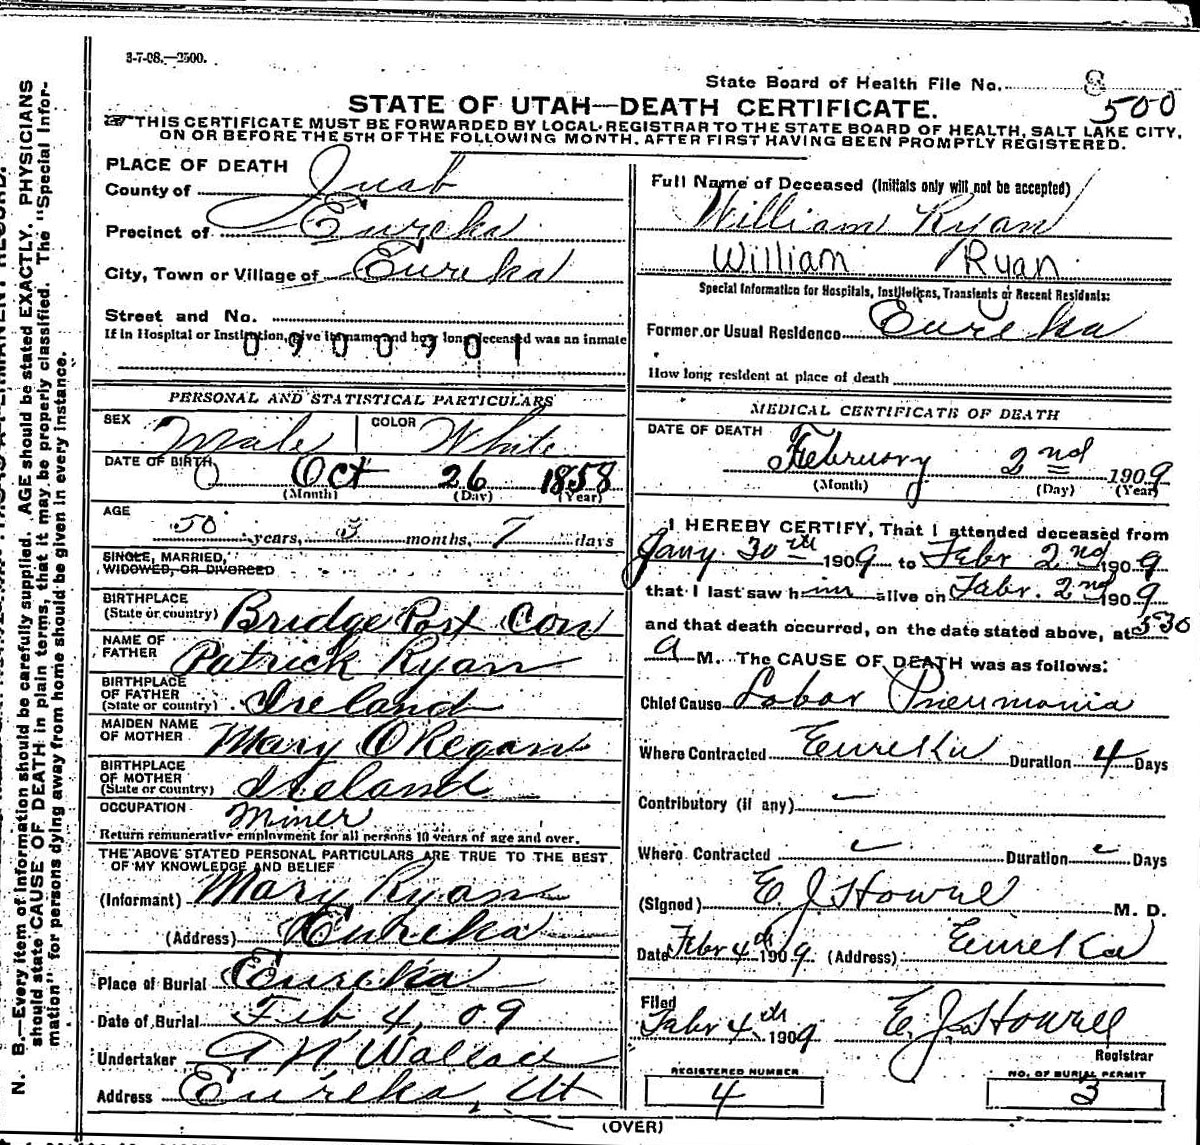 3-7-08.—2500.
State Board of Health File No. 8
500
STATE OF UTAH—DEATH CERTIFICATE.
THIS CERTIFICATE MUST BE FORWARDED BY LOCAL REGISTRAR TO THE STATE BOARD OF HEALTH, SALT LAKE CITY,
ON OR BEFORE THE 5TH OF THE FOLLOWING MONTH, AFTER FIRST HAVING BEEN PROMPTLY REGISTERED.
PLACE OF DEATH
County of Juab
Precinct of Eureka
City, Town or Village of Eureka
Street and No.
If in Hospital or Institution, give its name and how long deceased was an inmate
0900901
PERSONAL AND STATISTICAL PARTICULARS
SEX Male COLOR White
DATE OF BIRTH Oct 26 1858
(Month) (Day) (Year)
AGE
50 years, 3 months, 7 days
SINGLE, MARRIED,
WIDOWED, OR DIVORCED
BIRTHPLACE
(State or country) Bridge Port Con
NAME OF
FATHER Patrick Ryan
BIRTHPLACE
OF FATHER
(State or country) Ireland
MAIDEN NAME
OF MOTHER Mary O Regan
BIRTHPLACE
OF MOTHER
(State or country) Ireland
OCCUPATION Miner
Return remunerative employment for all persons 10 years of age and over.
THE ABOVE STATED PERSONAL PARTICULARS ARE TRUE TO THE BEST
OF MY KNOWLEDGE AND BELIEF
(Informant) Mary Ryan
(Address) Eureka
Place of Burial Eureka
Date of Burial Feb 4, 09
Undertaker A N Wallace
Address Eureka, Ut
Full Name of Deceased (Initials only will not be accepted)
William Ryan
William Ryan
Special Information for Hospitals, Institutions, Transients or Recent Residents:
Former or Usual Residence Eureka
How long resident at place of death
MEDICAL CERTIFICATE OF DEATH
DATE OF DEATH
February 2nd 1909
(Month) (Day) (Year)
I HEREBY CERTIFY, That I attended deceased from
Jany 30th 1909 to Febr 2nd 1909
that I last saw him alive on Febr. 2nd 1909
and that death occurred, on the date stated above, at 5:30
a M. The CAUSE OF DEATH was as follows:
Chief Cause Lobar Pneumonia
Where Contracted Eureka Duration 4 Days
Contributory (if any)
Where Contracted Duration Days
(Signed) E. J. Howell M. D.
Date Febr 4th 1909 (Address) Eureka
Filed
Febr 4th 1909 E. J. Howell
Registrar
REGISTERED NUMBER
4
NO. OF BURIAL PERMIT
3
(OVER)
N. B.—Every item of information should be carefully supplied. AGE should be stated EXACTLY. PHYSICIANS
should state CAUSE OF DEATH in plain terms, that it may be properly classified. The "Special Infor-
mation" for persons dying away from home should be given in every instance.